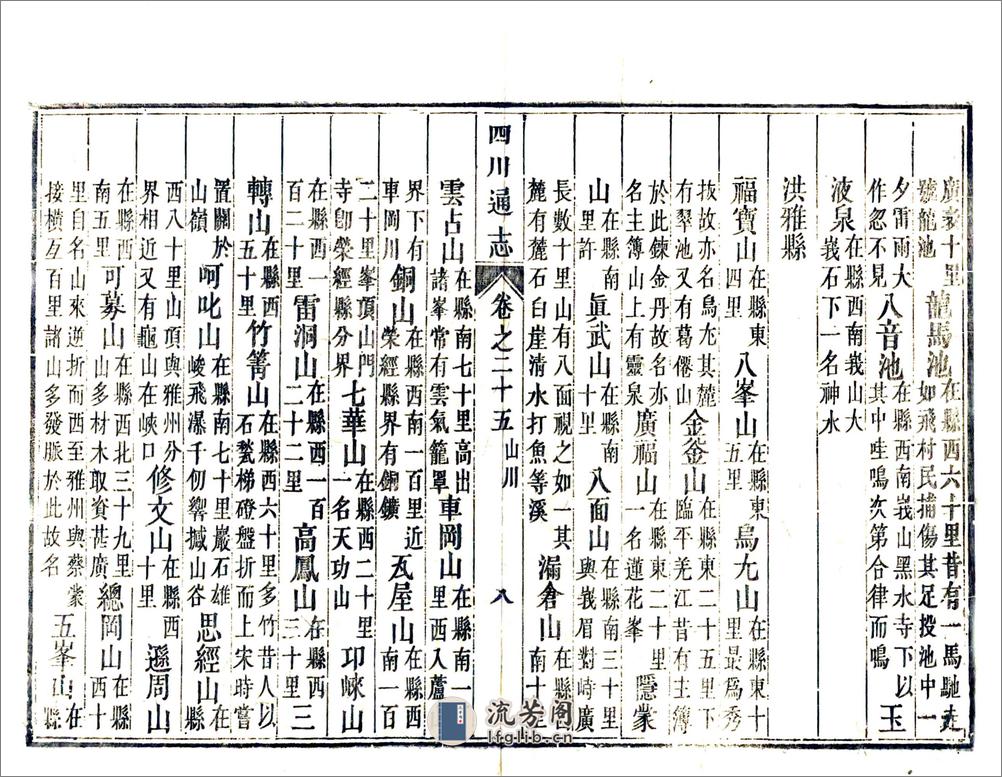 廣袤十里號龍池龍馬池在縣西六十里昔有一馬馳走如飛村民捕傷其足投池中一
夕雷雨大作忽不見八音池在縣西南峩山黑水寺下以其中哇鳴次第合律而鳴玉
液泉在縣西南峩山大峩石下一名神水
洪雅縣
福寶山在縣東四里八峯山在縣東五里烏尢山在縣東十里最爲秀
拔故亦名烏尢其麓有翠池又有葛僊山金釜山在縣東二十五里下臨平羌江昔有主簿
於此鍊金丹故名亦名主簿山上有靈泉廣福山在縣東二十里一名蓮花峯隱蒙
山在縣南里許眞武山在縣南十里八面山在縣南三十里與峩眉對峙廣
長數十里山有八面視之如一其麓有麓石白崖清水打魚等溪漏倉山在縣南十五
四川通志 卷之二十五 山川 八
雲占山在縣南七十里高出諸峯常有雲氣籠罩車岡山在縣南一百里西入蘆
界下有車岡川銅山在縣西南一百里近榮經縣界有銅鑛瓦屋山在縣西南一百
二十里峯頂山門寺卽榮經縣分界七華山在縣西二十里一名天功山邛崍山
在縣西一百二十里雷洞山在縣西一百二十二里高鳳山在縣西三十里三
轉山在縣西五十里竹箐山在縣西六十里多竹昔人以石甃梯磴盤折而上宋時嘗
置關於山嶺呵叱山在縣南七十里巖石雄峻飛瀑千仞響撼山谷思經山在縣
西八十里山頂與雅州分界相近又有龜山在峽口修文山在縣西十里遜周山
在縣西南五里可募山在縣西北三十九里山多材木取資甚廣總岡山在縣西十
里自名山來逆折而西至雅州與蔡蒙接橫亙百里諸山多發脈於此故名五峯山在縣
流芳阁
lfglib.cn